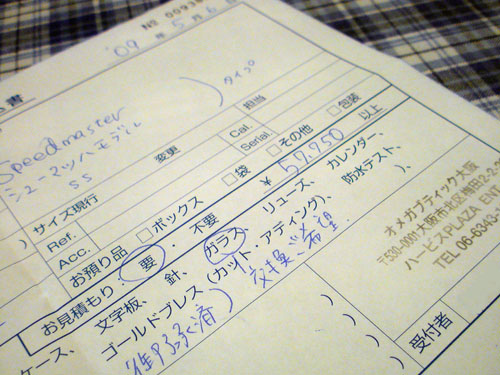 No 00938
'09 年 5 月 6 日
書
Speedmaster
シューマッハモデル
SS
) タイプ
担当
変更
Cal.
Serial.
) サイズ現行
Ref.
Acc.
お預り品 □ボックス □袋 □その他 □包装
お見積もり 要 ・ 不要 ¥ 57,750 以上
ケース、文字板、針、ガラス、リューズ、カレンダー、
ゴールドプレス、(カット・アティング)、防水テスト、
交換ご希望
)
)
)
受付者
オメガブティック大阪
〒530-0001 大阪市北区梅田2-2-
ハービスPLAZA
TEL 06-6343